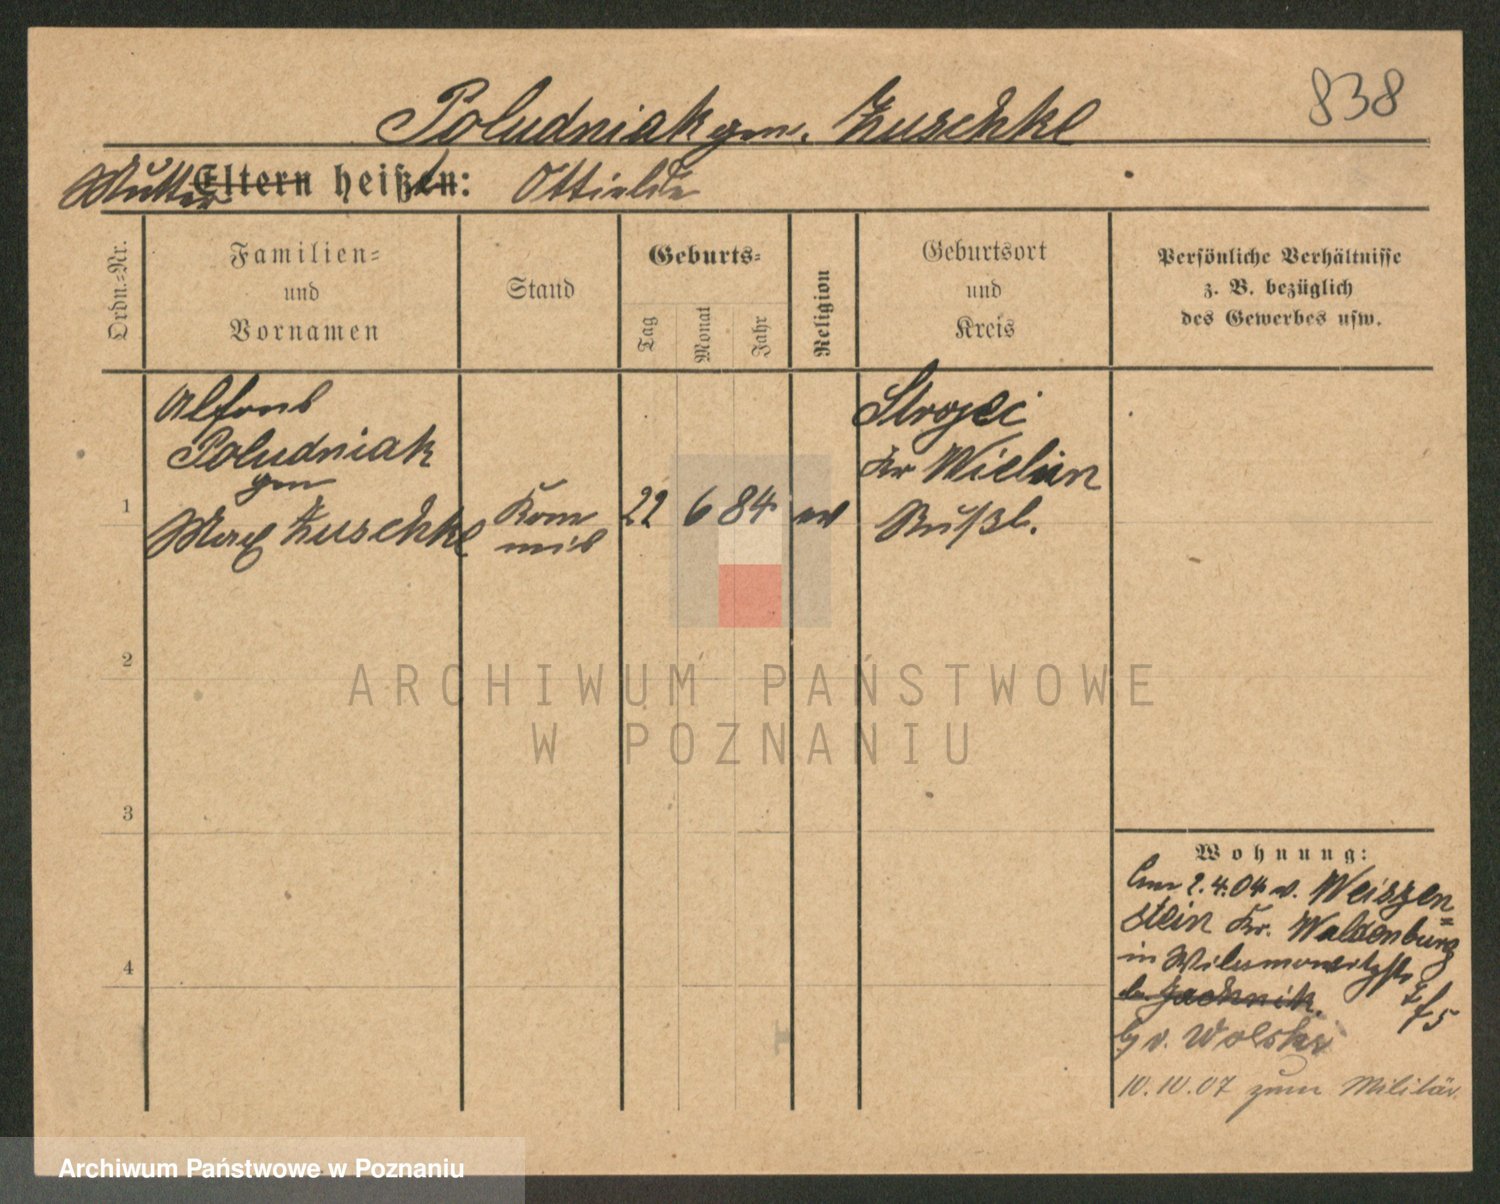 838
Poludniak gen. Kuschke
Mutter Eltern heißen: Ottielde
Ordn.-Nr.
Familien-
und
Vornamen
Stand
Geburts-
Tag
Monat
Jahr
Religion
Geburtsort
und
Kreis
Persönliche Verhältnisse
z. B. bezüglich
des Gewerbes usw.
1
Alfons
Poludniak
gen
Max Kuschke
Kom
mis
22 6 84
ev
Strojec
Kr Wielun
Rußl.
2
3
4
Wohnung:
2.4.04 v. Weiszen=
stein Kr. Waldenburg
in
b. Jachnik.
b v. Wolski
10.10.07 zum Militär
ARCHIWUM PAŃSTWOWE
W POZNANIU
Archiwum Państwowe w Poznaniu